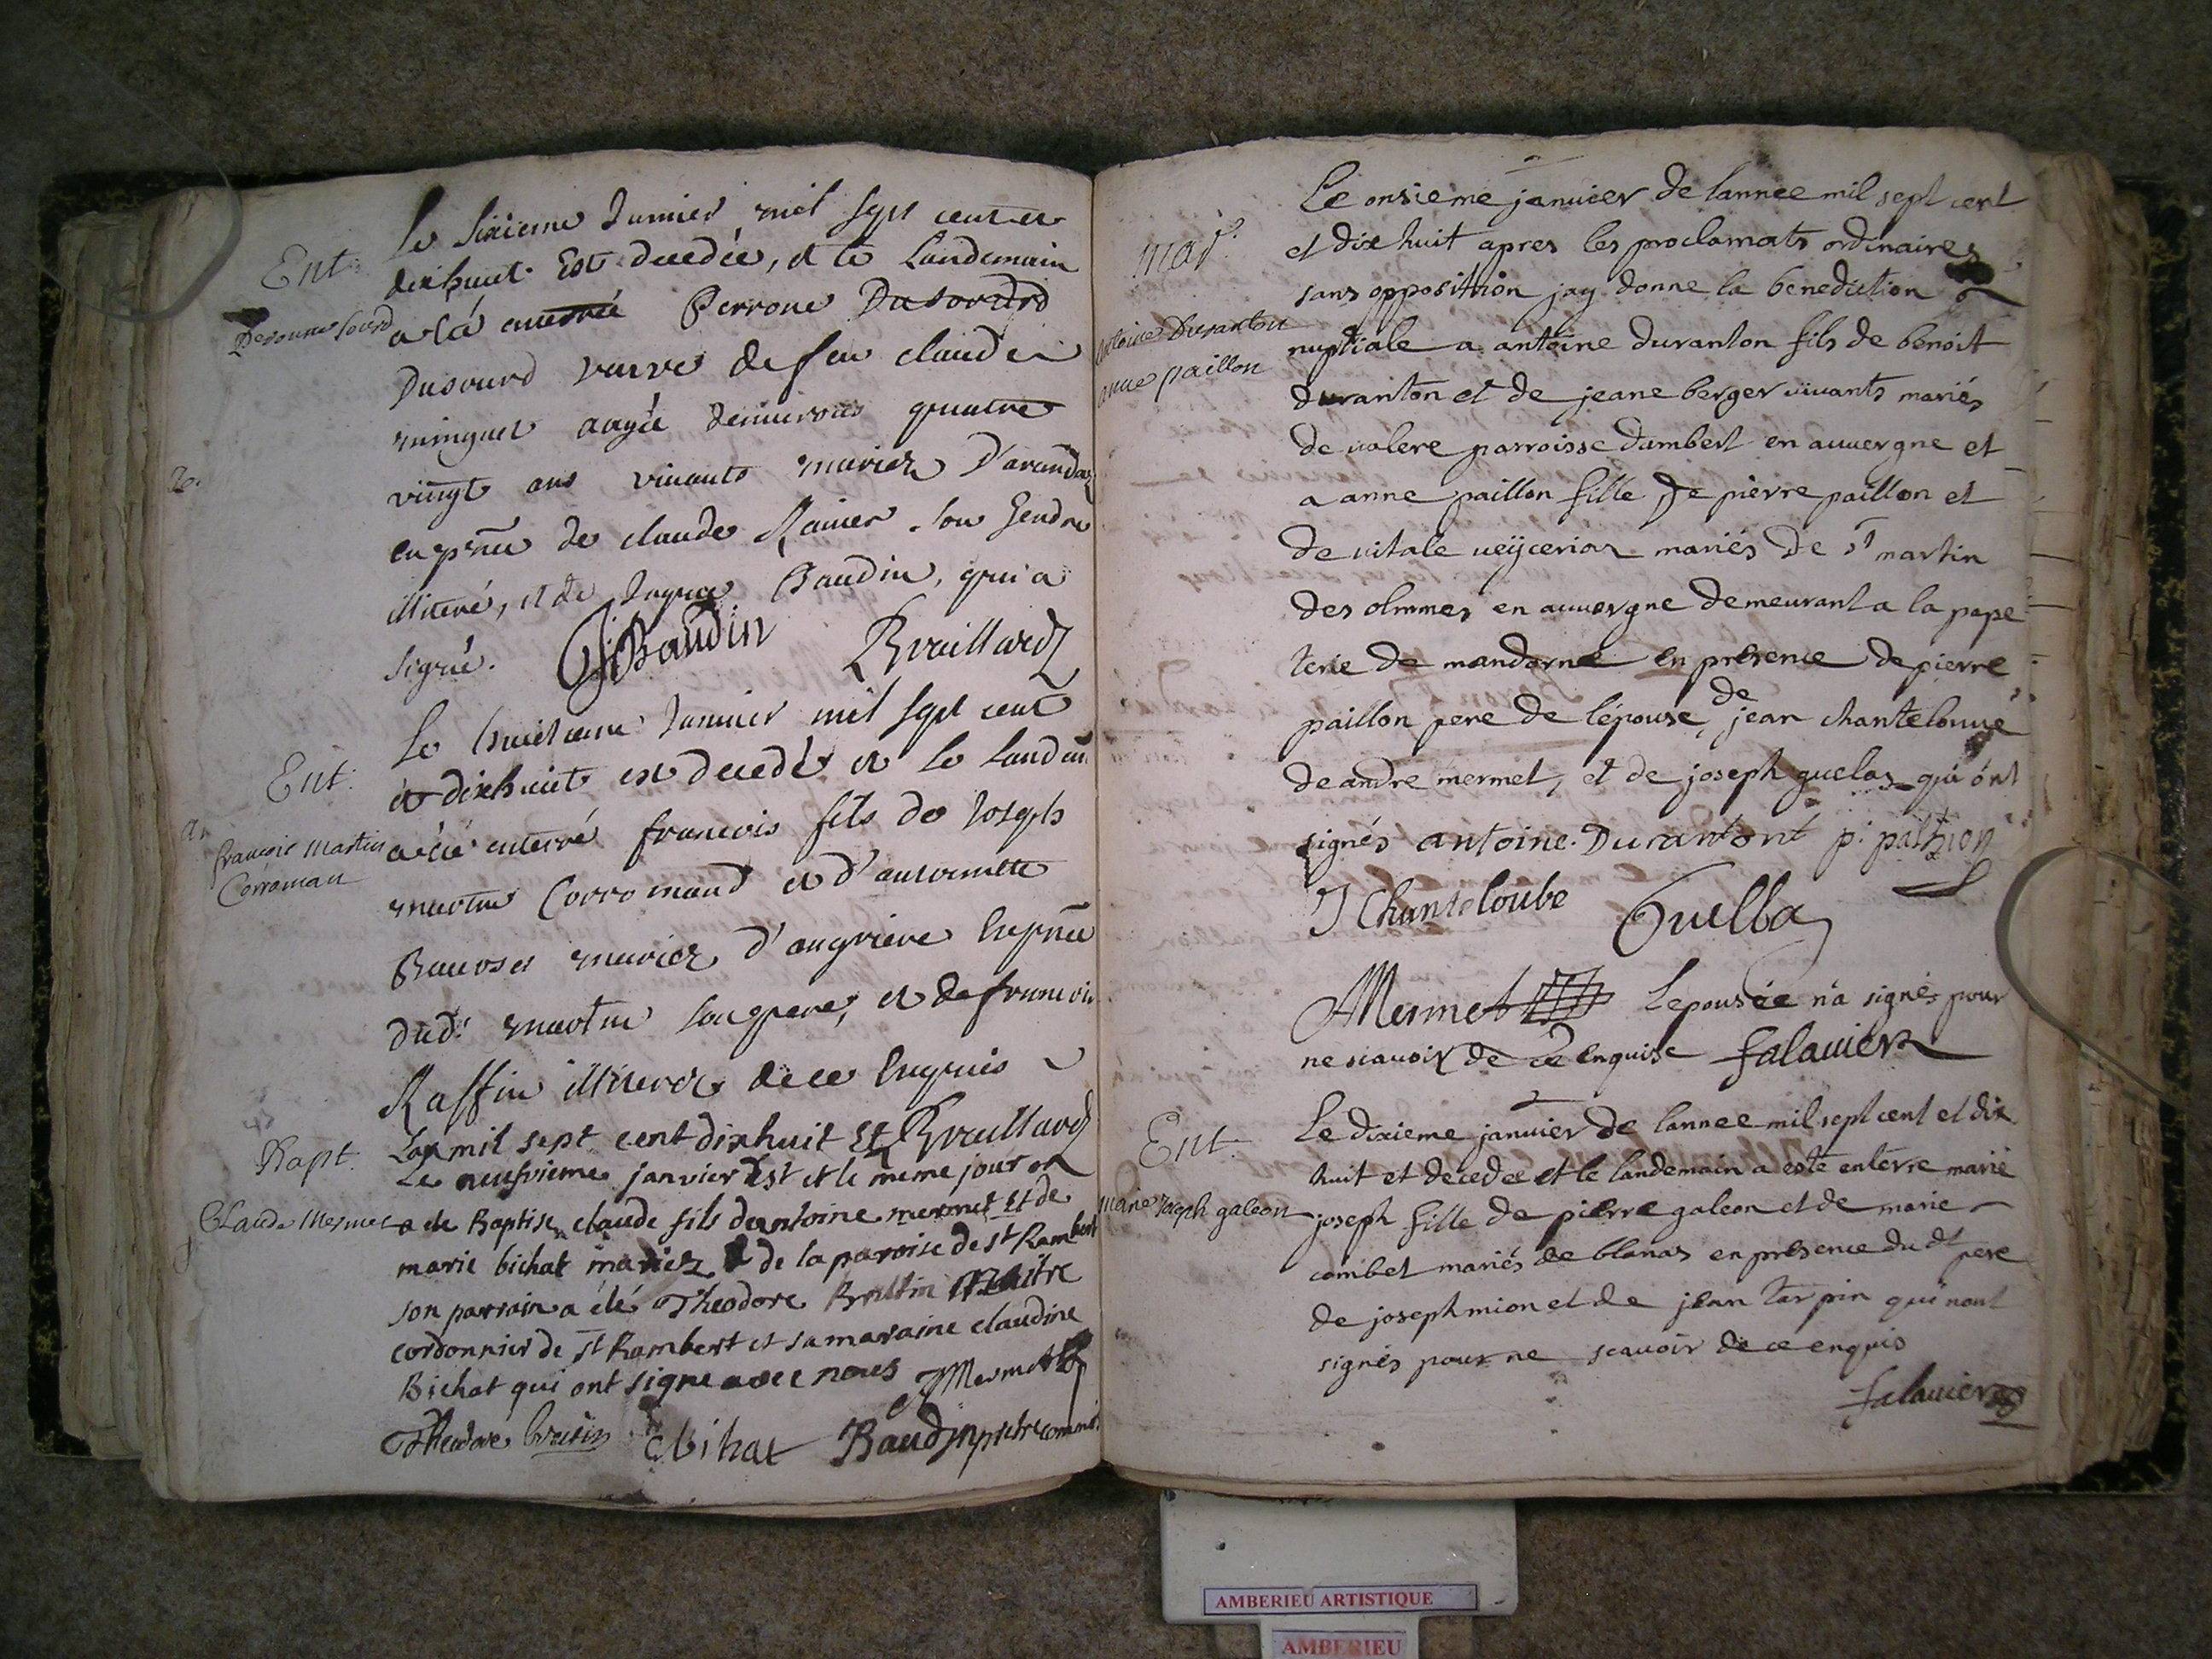 Ent.
Le sixieme Janvier mil sept cent et
dixhuit Est decedée, et le Landemain
Peronne sourd
a été enterrée Perrone Dusourd
Dusourd veuve de feu claude
minguet aagée denviron quatre
vingt ans vivants mariez D'arandas
en pñce de claude Ravier son Gendre
illiteré, et de Jaque Baudin, qui a
signé. JBaudin Bvaillard
Ent.
Le huitieme Janvier mil sept cent
et dixhuit est decedé et le landem
francois Martin
Corroman
a été enterré francois fils de Joseph
martin Corromand et d'antoinette
mariez d'angriere en pñce
dud. martin son pere, et de francois
Raffin illiterez de ce enquis
Bapt.
Lan mil sept cent dixhuit et Bvaillard
Le neufvieme janvier Est et le meme jour
Claude Mermet
a ete Baptise claude fils dantoine mermet et de
marie bichat mariez de la paroise de st Rambert
son parrain a été Theodore Maitre
cordonnier de st Rambert et sa maraine claudine
Bichat qui ont signe avec nous Mermet
Theodore C bihat Baudin pretre commis
mar.
Le onsieme januier de lannee mil sept cent
et dix huit apres les proclamats ordinaires
sans opposition jay donne la benediction
Antoine Duranton
anne paillon
nuptiale a antoine duranton fils de benoit
duranton et de jeane berger vivants mariés
de valere parroisse dambert en auvergne et
a anne paillon fille de pierre paillon et
de vitale veÿcerias mariés de st martin
des olmmes en auvergne demeurant a la pape
terie de mandorne en presence de pierre
paillon pere de lépouse, de jean chantelouve
de andre mermet, et de joseph guelas qui ont
signés antoine. Durantont p. palhion
J Chanteloube Guelba
AMermet Lepousée n'a signé pour
ne sçavoir de ce enquise falavier
Ent.
Le dixieme januier de lannee mil sept cent et dix
huit et decedee et le landemain a esté enterre marie
Marie Joseph galeon
joseph fille de pierre galeon et de marie
combet mariés de blanas en presence du dt pere
de joseph mion et de jean tarpin qui nont
signés pour ne scavoir de ce enquis
falavier
AMBERIEU ARTISTIQUE
AMBERIEU